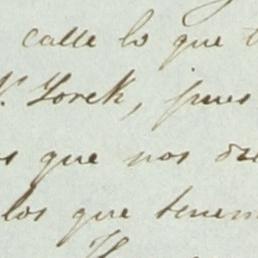 calle lo que
N. Yorck, pues
que nos
los que tenem